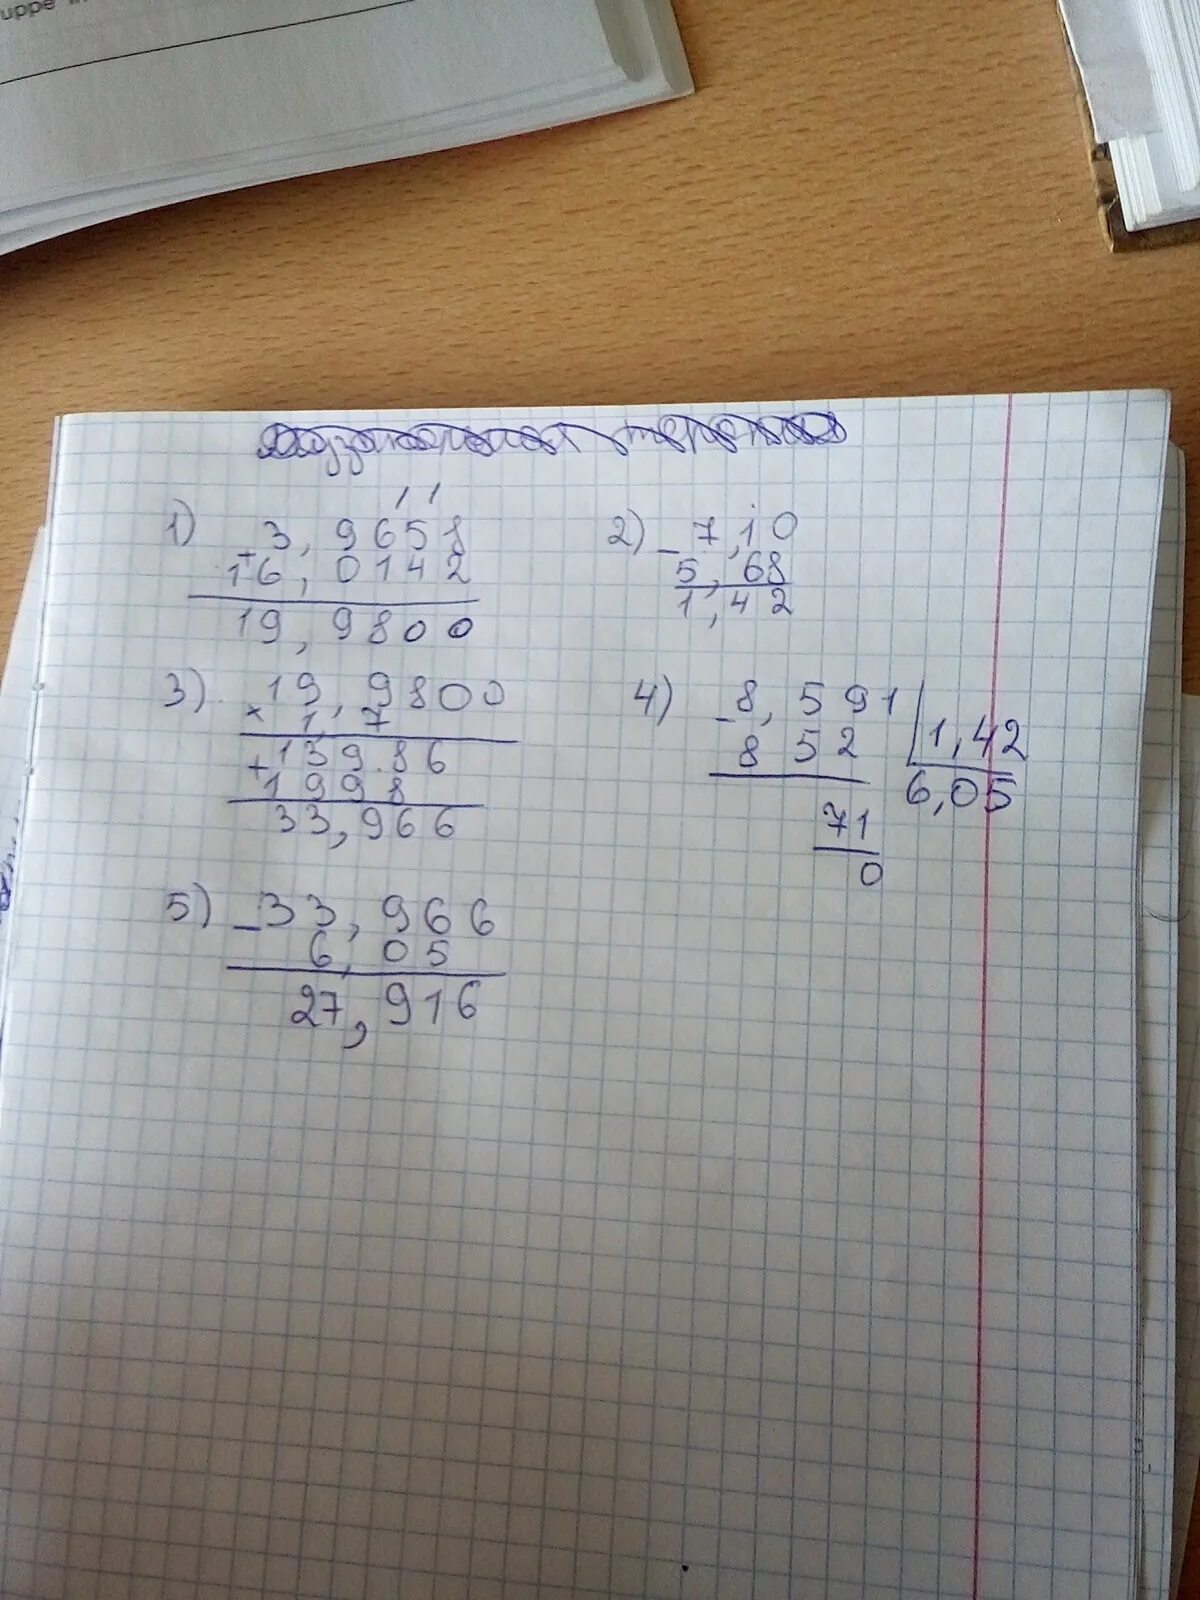 uppe
1) 3,9658
+
16,0142
19,9800
2) - 7,10
5,68
1,42
3) 19,9800
× 1,7
+ 139.86
1998
33,966
4) - 8,591 | 1,42
852
6,05
71
0
5) - 33,966
6,05
27,916